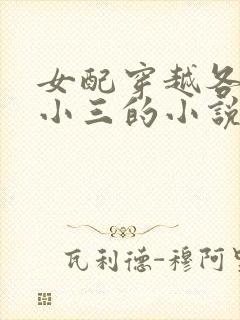 女配穿越各
小三的小说
瓦利德-穆阿